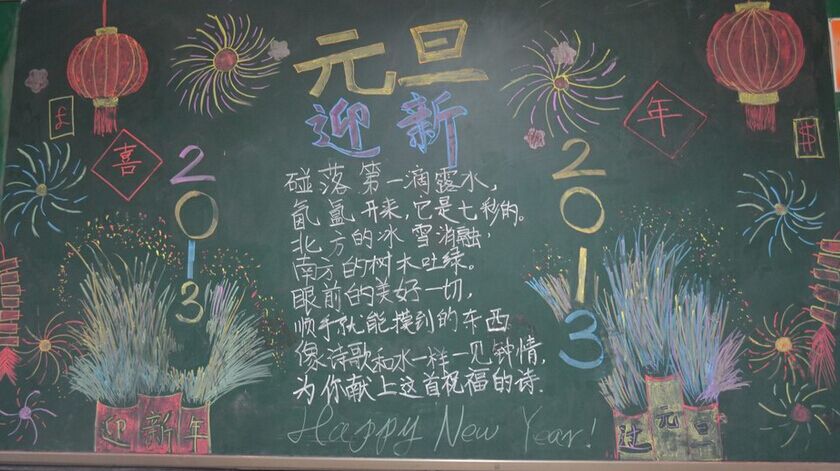 元旦
迎新
喜
年
£
$
2013
2013
碰落第一滴露水,
氤氲开来,它是七秒的。
北方的冰雪消融
南方的树木吐绿。
眼前的美好一切,
顺手就能摸到的东西
像诗歌和水一样一见钟情,
为你献上这首祝福的诗.
Happy New Year!
迎新年
过元旦